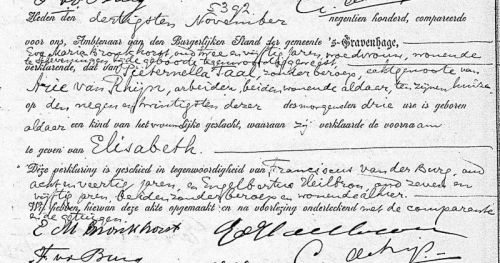 5392
Heden den dertigsten November negentien honderd, compareerde
voor ons, Ambtenaar van den Burgerlijken Stand der gemeente 's-Gravenhage,
Eva Maria Bronkhorst, oud jaren, vroedvrouw, wonende
te Scheveningen, bij de geboorte tegenwoordig geweest,
verklarende, dat Pieternella Taal, zonder beroep, echtgenoote van
Arie van Rhijn, arbeider, beiden wonende aldaar, te zijnen huize
op den negen en twintigsten dezer des morgens ten drie ure is geboren
aldaar een kind van het vrouwelijke geslacht, waaraan zij verklaarde de voornaam
te geven van Elisabeth.
Deze verklaring is geschied in tegenwoordigheid van Franciscus van der Burg, oud
acht en veertig jaren, en Engelbertus Heilbron, oud zeven en
vijftig jaren, beiden zonder beroep en wonende alhier.
Wij hebben hiervan deze akte opgemaakt en na voorlezing onderteekend met de comparante
en de getuigen.
E M Bronkhorst
F v d Burg